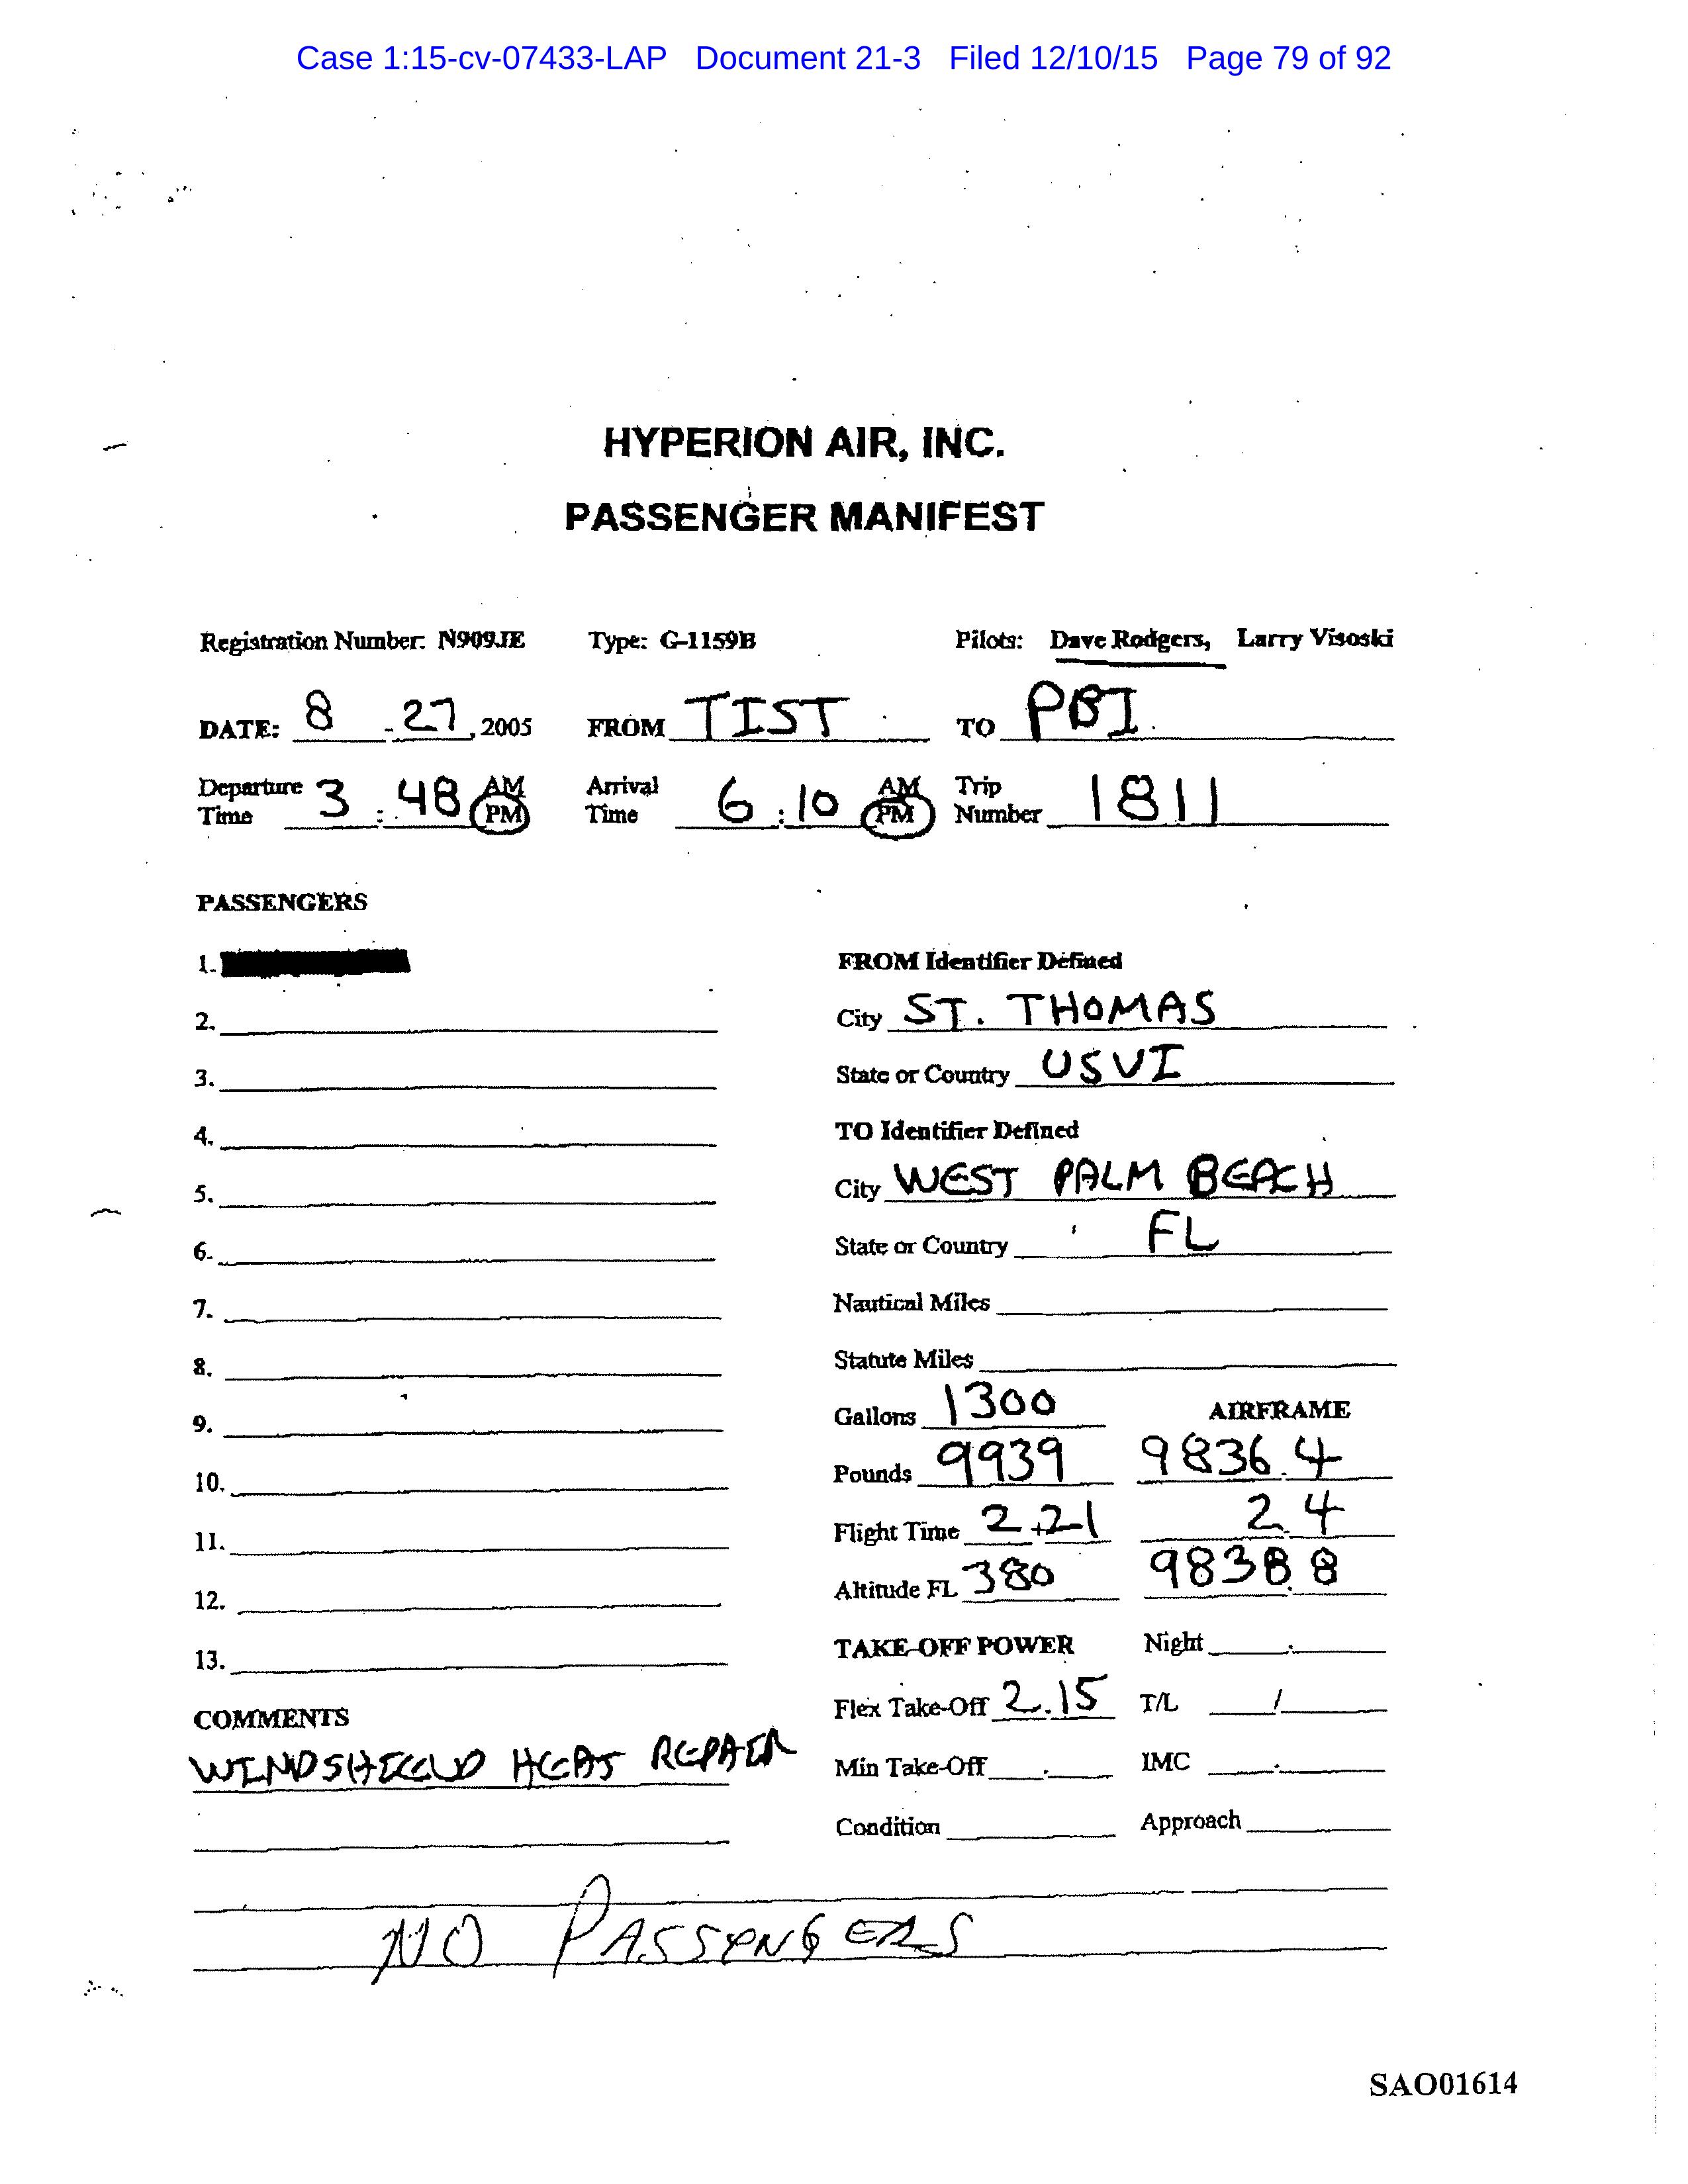 Case 1:15-cv-07433-LAP Document 21-3 Filed 12/10/15 Page 79 of 92
HYPERION AIR, INC.
PASSENGER MANIFEST
Registration Number: N909JE Type: G-1159B Pilots: Dave Rodgers, Larry Visoski
DATE: 8 - 27, 2005 FROM TIST TO PBI
Departure Time 3 : 48 AM PM Arrival Time 6 : 10 AM PM Trip Number 1811
PASSENGERS
1.
2.
3.
4.
5.
6.
7.
8.
9.
10.
11.
12.
13.
COMMENTS
WINDSHIELD HEAT REPAIR
FROM Identifier Defined
City ST. THOMAS
State or Country USVI
TO Identifier Defined
City WEST PALM BEACH
State or Country FL
Nautical Miles
Statute Miles
Gallons 1300 AIRFRAME
Pounds 9939 9836.4
Flight Time 2+21 2.4
Altitude FL 380 9838.8
TAKE-OFF POWER Night .
Flex Take-Off 2.15 T/L /
Min Take-Off . IMC .
Condition Approach
NO PASSENGERS
SAO01614